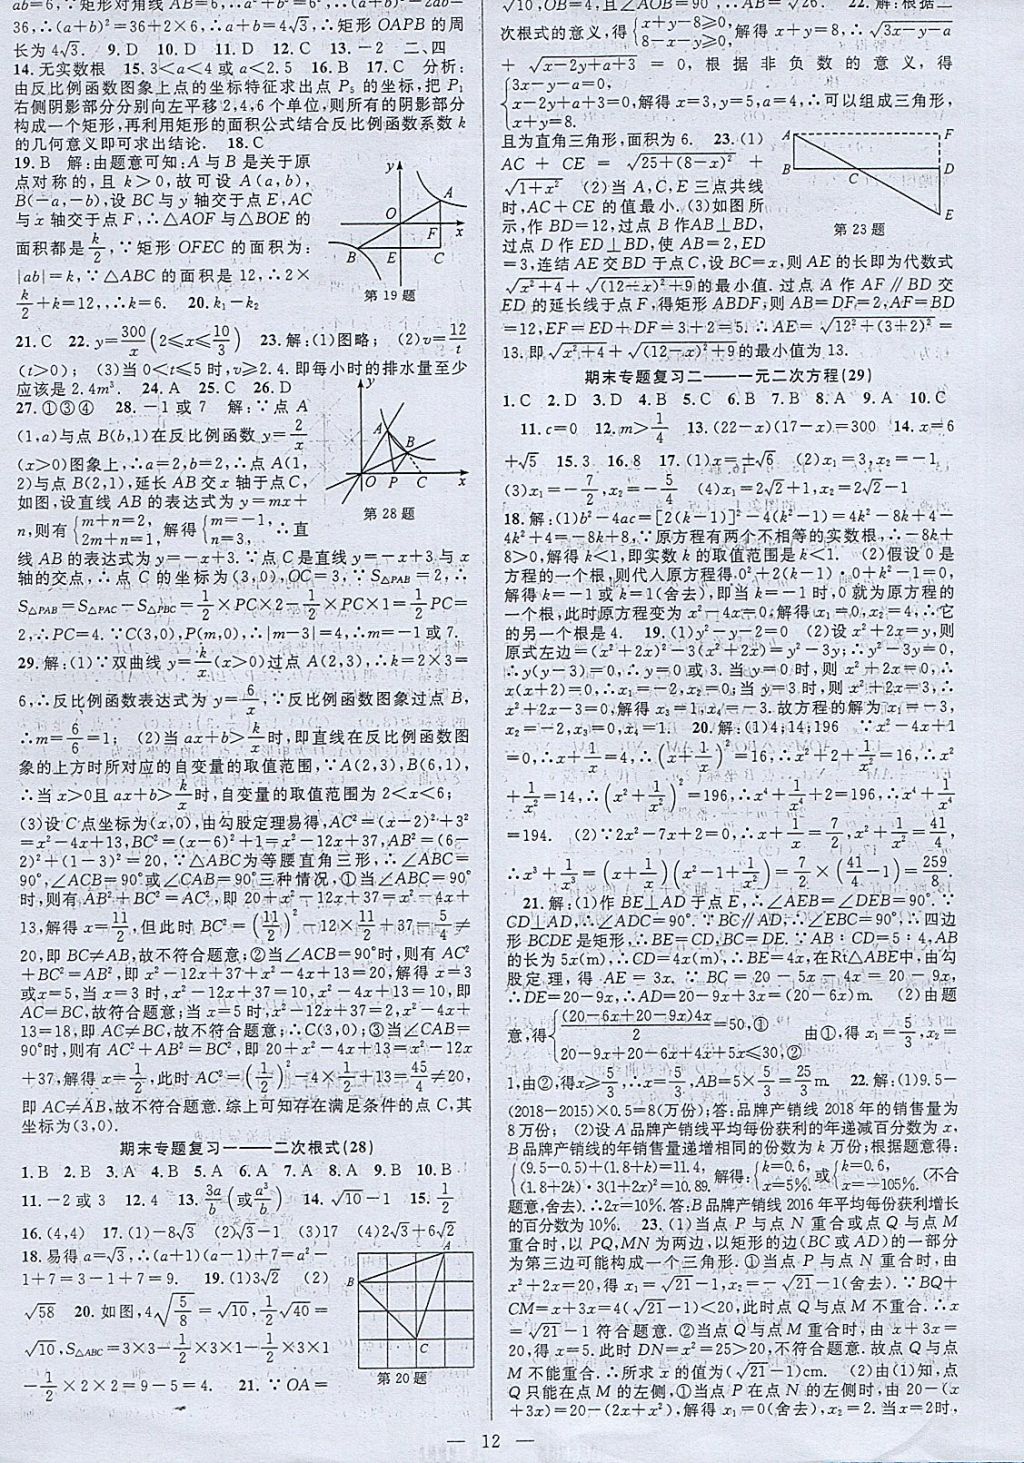 ab=6,∵矩形对角线 AB=6,∴a²+b²=6²,∴(a+b)²-2ab=
36,∴(a+b)²=36+2×6,∴a+b=4√3,∴矩形 OAPB 的周
长为4√3.　9.D　10.D　11.D　12.C　13.-2　二、四
14.无实数根　15.3<a<4或a<2.5　16.B　17.C　分析:
由反比例函数图象上点的坐标特征求出点 P₅ 的坐标,把 P₁
右侧阴影部分分别向左平移2,4,6个单位,则所有的阴影部分
构成一个矩形,再利用矩形的面积公式结合反比例函数系数 k
的几何意义即可求出结论.　18.C
19.B　解:由题意可知:A与B是关于原
点对称的,且 k>0,故可设 A(a,b),
B(-a,-b),设BC与y轴交于点E,AC
与x轴交于点F,∴△AOF与△BOE的
面积都是k/2,∵矩形 OFEC 的面积为:
|ab|=k,∵△ABC 的面积是 12,∴2×
k/2+k=12,,∴k=6.　20.k₁-k₂
第19题
21.C　22.y=300/x(2≤x≤10/3)　23.解:(1)图略;　(2)v=12/t
(t>0);　(3)当0<t≤5时,v≥2.4.即每小时的排水量至少
应该是2.4m³.　24.A　25.C　26.D
27.①③④　28.-1或7　解:∵点A
(1,a)与点B(b,1)在反比例函数y=2/x
(x>0)图象上,∴a=2,b=2,∴点A(1,
2)与点B(2,1),延长AB交x轴于点C,
如图,设直线 AB 的表达式为 y=mx+
n,则有{m+n=2, 2m+n=1, 解得{m=-1, n=3, ∴直
第28题
线AB的表达式为y=-x+3.∵点C是直线y=-x+3与x
轴的交点,∴点C的坐标为(3,0),OC=3,∵S△PAB=2,∴
S△PAB=S△PAC-S△PBC=1/2×PC×2-1/2×PC×1=1/2PC=
2,∴PC=4.∵C(3,0),P(m,0),∴|m-3|=4,∴m=-1或7.
29.解:(1)∵双曲线y=k/x(x>0)过点A(2,3),∴k=2×3=
6,∴反比例函数表达式为y=6/x,∵反比例函数图象过点B,
∴m=6/6=1;　(2)当ax+b>k/x时,即直线在反比例函数图
象的上方时所对应的自变量的取值范围,∵A(2,3),B(6,1),
∴当x>0且ax+b>k/x时,自变量的取值范围为2<x<6;
(3)设C点坐标为(x,0),由勾股定理易得,AC²=(x-2)²+3²
=x²-4x+13,BC²=(x-6)²+1=x²-12x+37,AB²=(6-
2)²+(1-3)²=20,∵△ABC为等腰直角三形,∴∠ABC=
90°,∠ACB=90°或∠CAB=90°三种情况,①当∠ABC=90°
时,则有AB²+BC²=AC²,即20+x²-12x+37=x²-4x+
13,解得x=11/2,但此时BC²=(11/2)²-12×11/2+37=5/4≠
20,即BC≠AB,故不符合题意;②当∠ACB=90°时,则有AC²
+BC²=AB²,即x²-12x+37+x²-4x+13=20,解得x=3
或x=5,当x=3时,x²-12x+37=10,x²-4x+13=10,即
AC=BC,故符合题意;当x=5时,x²-12x+37=2,x²-4x+
13=18,即AC≠BC,故不符合题意;∴C(3,0);③当∠CAB=
90°时,则有AC²+AB²=BC²,即20+x²-4x+13=x²-12x
+37,解得x=1/2,此时AC²=(1/2)²-4×1/2+13=45/4≠20,
即AC≠AB,故不符合题意.综上可知存在满足条件的点C,其
坐标为(3,0).
期末专题复习一——二次根式(28)
1.B　2.B　3.A　4.B　5.A　6.A　7.A　8.A　9.B　10.B
11.-2或3　12.4　13.3a/b(或a³/b)　14.√10-1　15.1/2
16.(4,4)　17.(1)-8√3　(2)√3-1　(3)17　(4)2√3+6√2
18.易得a=√3,∴(a+1)(a-1)+7=a²-
1+7=3-1+7=9.　19.(1)3√2　(2)
√58　20.如图,4√(5/8)=√10,1/2√40=
√10,S△ABC=3×3-1/2×3×1-1/2×3×1
-1/2×2×2=9-5=4.　21.∵OA=
第20题
√10,OB=4,且∠AOB=90°,∴AB=√26.　22.解:根据二
次根式的意义,得{x+y-8≥0, 8-x-y≥0, 解得x+y=8,∴√(3x-y-a)
+√(x-2y+a+3)=0,根据非负数的意义,得
{3x-y-a=0, x-2y+a+3=0, x+y=8. 解得x=3,y=5,a=4,∴可以组成三角形,
且为直角三角形,面积为6.　23.(1)
AC+CE=√(25+(8-x)²)+
√(1+x²)　(2)当A,C,E三点共线
时,AC+CE的值最小.(3)如图所
示,作BD=12,过点B作AB⊥BD,
过点D作ED⊥BD,使AB=2,ED
第23题
=3,连结AE交BD于点C,设BC=x,则AE的长即为代数式
√(x²+4)+√((12-x)²+9)的最小值.过点A作AF∥BD交
ED的延长线于点F,得矩形ABDF,则AB=DF=2,AF=BD
=12,EF=ED+DF=3+2=5.∴AE=√(12²+(3+2)²)=
13.即√(x²+4)+√((12-x)²+9)的最小值为13.
期末专题复习二——一元二次方程(29)
1.C　2.D　3.D　4.B　5.C　6.B　7.B　8.A　9.A　10.C
11.c=0　12.m>1/4　13.(22-x)(17-x)=300　14.x=6
+√5　15.3　16.8　17.(1)x=±√6　(2)x₁=3,x₂=-1
(3)x₁=-7/2,x₂=-5/4　(4)x₁=2√2+1,x₂=2√2-1
18.解:(1)b²-4ac=[2(k-1)]²-4(k²-1)=4k²-8k+4-
4k²+4=-8k+8,∵原方程有两个不相等的实数根,∴-8k+
8>0,解得k<1,即实数k的取值范围是k<1.　(2)假设0是
方程的一个根,则代人原方程得0²+2(k-1)·0+k²-1=0,
解得k=-1或k=1(舍去),即当k=-1时,0就为原方程的
一个根,此时原方程变为x²-4x=0,解得x₁=0,x₂=4,∴它
的另一个根是4.　19.(1)y²-y-2=0　(2)设x²+2x=y,则
原式左边=(x²+2x)²-3(x²+2x)=y²-3y;∴y²-3y=0,
∴y(y-3)=0,∴y=0或3.当y=0时,则x²+2x=0,∴
x(x+2)=0,∴x₁=-2,x₂=0;当y=3时,则x²+2x=3,∴
x²+2x-3=0,解得x₃=1,x₄=-3.故方程的解为x₁=-3,
x₂=-2,x₃=0,x₄=1.　20.解:(1)4;14;196　∵x²-4x+1
=0,∴x+1/x=4,∴(x+1/x)²=16,∴x²+2+1/x²=16,∴x²
+1/x²=14,∴(x²+1/x²)²=196,∴x⁴+1/x⁴+2=196,∴x⁴+1/x⁴
=194.　(2)∵2x²-7x+2=0,∴x+1/x=7/2,x²+1/x²=41/4,
∴x³+1/x³=(x+1/x)(x²-1+1/x²)=7/2×(41/4-1)=259/8.
21.解:(1)作BE⊥AD于点E,∴∠AEB=∠DEB=90°.∵
CD⊥AD,∴∠ADC=90°.∵BC∥AD,∴∠EBC=90°,∴四边
形BCDE是矩形,∴BE=CD,BC=DE.∵AB∶CD=5∶4,AB
的长为5x(m),∴CD=4x(m),∴BE=4x,在Rt△ABE中,由勾
股定理,得AE=3x,∵BC=20-5x-4x=20-9x,
∴DE=20-9x,∴AD=20-9x+3x=(20-6x)m.　(2)由题
意,得{(20-6x+20-9x)4x/2=50,① 20-9x+20-6x+4x+5x≤30,② 由①,得x₁=5/3,x₂=
1,由②,得x≥5/3,∴x=5/3,∴AB=5×5/3=25/3m.　22.解:(1)9.5-
(2018-2015)×0.5=8(万份);答:品牌产销线2018年的销售量为
8万份;　(2)设A品牌产销线平均每份获利的年递减百分数为x,
B品牌产销线的年销售量递增相同的份数为k万份;根据题意得:
{(9.5-0.5)+(1.8+k)=11.4, (1.8+2k)·3(1+2x)²=10.89, 解得:{k=0.6, x=5%. 或{k=0.6, x=-105%. (不合
题意,舍去).∴2x=10%.答:B品牌产销线2016年平均每份获利增长
的百分数为10%.　23.(1)当点P与点N重合或点Q与点M
重合时,以PQ,MN为两边,以矩形的边(BC或AD)的一部分
为第三边可能构成一个三角形.①当点P与点N重合时,由
x²+2x=20,得x₁=√21-1,x₂=-√21-1(舍去).∵BQ+
CM=x+3x=4(√21-1)<20,此时点Q与点M不重合.∴x
=√21-1符合题意.②当点Q与点M重合时,由x+3x=
20,得x=5.此时DN=x²=25>20,不符合题意.故点Q与点
M不能重合.∴所求x的值为(√21-1)cm.　(2)由(1)知,点
Q只能在点M的左侧,①当点P在点N的左侧时,由20-(x
+3x)=20-(2x+x²),解得x₁=0(舍去),x₂=2.当x=2时,
— 12 —